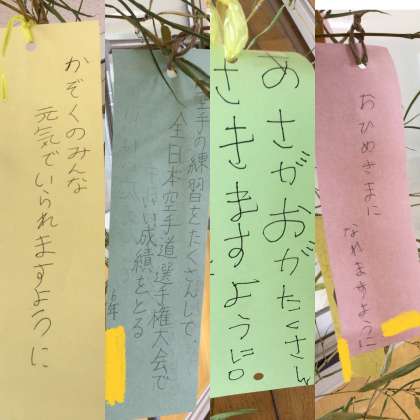 かぞくのみんな
元気でいられますように
空手の練習をたくさんして、
全日本空手道選手権大会で
い成績をとる
6年
あさがおがたくさん
さきますように。
おひめさまに
なれますように